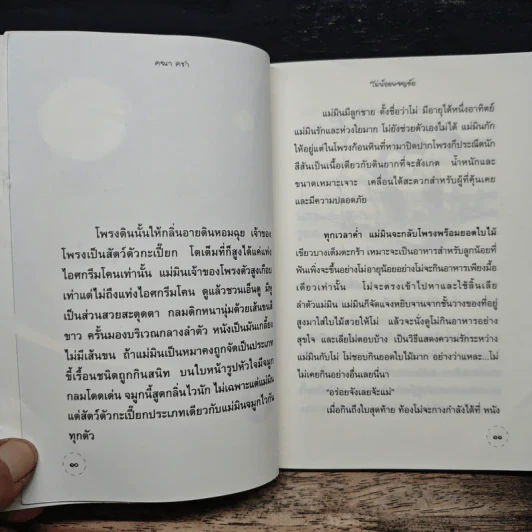 คฑา คชา
โพรงดินนั้นให้กลิ่นอายดินหอมฉุย เจ้าของ
โพรงเป็นสัตว์ตัวกะเปี๊ยก โตเต็มที่ก็สูงได้แค่แท่ง
ไอศกรีมโคนเท่านั้น แม่มินเจ้าของโพรงตัวสูงเกือบ
เท่าแต่ไม่ถึงแท่งไอศกรีมโคน ดูแล้วชวนเอ็นดู มีหู
เป็นส่วนสวยสะดุดตา กลมดิกหนานุ่มด้วยเส้นขนสี
ขาว ครั้นมองบริเวณกลางลำตัว หนังเป็นมันเกลี้ยง
ไม่มีเส้นขน ถ้าแม่มินเป็นหมาคงถูกจัดเป็นประเภท
ขี้เรื้อนชนิดถูกกินสนิท บนใบหน้ารูปหัวใจมีจมูก
กลมโดดเด่น จมูกนี้สูดกลิ่นไวนัก ไม่เฉพาะแต่แม่มิน
แต่สัตว์ตัวกะเปี๊ยกประเภทเดียวกับแม่มินจมูกไวกัน
ทุกตัว
๑๐
ไม่น้อยผจญภัย
แม่มินมีลูกชาย ตั้งชื่อว่าไม่ มีอายุได้หนึ่งอาทิตย์
แม่มินรักและห่วงใยมาก ไม่ยังช่วยตัวเองไม่ได้ แม่มินกัก
ให้อยู่แต่ในโพรงก้อนหินที่หามาปิดปากโพรงก็ประณีตนัก
สีสันเป็นเนื้อเดียวกับดินยากที่จะสังเกต น้ำหนักและ
ขนาดเหมาะเจาะ เคลื่อนได้สะดวกสำหรับผู้ที่คุ้นเคย
และมีความปลอดภัย
ทุกเวลาค่ำ แม่มินจะกลับโพรงพร้อมยอดใบไม้
เขียวบางเต็มตะกร้า เหมาะจะเป็นอาหารสำหรับลูกน้อยที่
ฟันเพิ่งจะขึ้นอย่างไม่อายุน้อยอย่างไม่จะกินอาหารเพียงมื้อ
เดียวเท่านั้น ไม่จะตรงเข้าไปหาและใช้ลิ้นเลีย
ลำตัวแม่มิน แม่มินก็จัดแจงหยิบจานจากชั้นวางของที่อยู่
สูงมาใส่ใบไม้สวยให้ไม่ แล้วจะนั่งดูไม่กินอาหารอย่าง
สุขใจ และเลียไม่ตอบบ้าง เป็นวิธีแสดงความรักระหว่าง
แม่มินกับไม่ ไม่ชอบกินยอดใบไม้มาก อย่างว่าแหละ...ไม่
ไม่เคยกินอย่างอื่นเลยนี่นา
"อร่อยจังเลยจ้ะแม่"
เมื่อกินถึงใบสุดท้าย ท้องไม่จะกางกำลังได้ที่ หนัง
๑๑